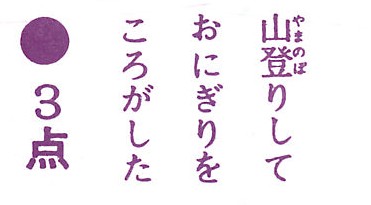 山登りして
おにぎりを
ころがした
●3点